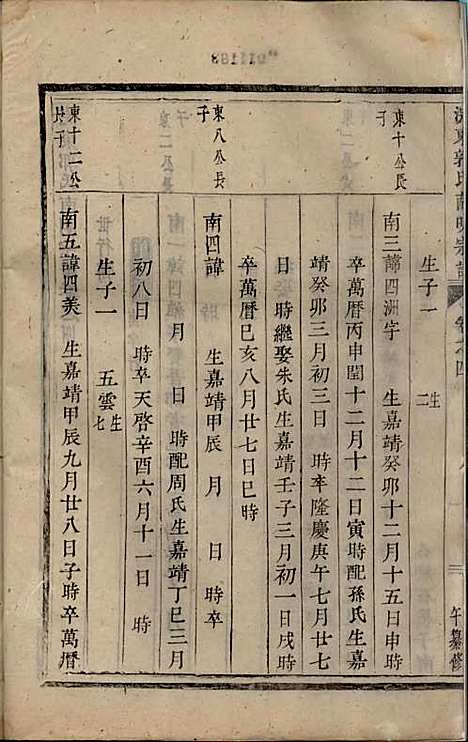 卷之四
午纂修
生子一 生二
東十公長子
南三諱四洲字 生嘉靖癸卯十二月十五日申時
卒萬曆丙申閏十二月十二日寅時配孫氏生嘉
靖癸卯三月初三日 時卒隆慶庚午七月廿七
日 時繼娶朱氏生嘉靖壬子三月初一日戌時
卒萬曆巳亥八月廿七日巳時
東八公長子
南四諱 生嘉靖甲辰 月 日 時卒
月 日 時配周氏生嘉靖丁巳三月
初八日 時卒天啓辛酉六月十一日 時
生子一 五雲 生七
東十二公長子
南五諱四美 生嘉靖甲辰九月廿八日子時卒萬曆